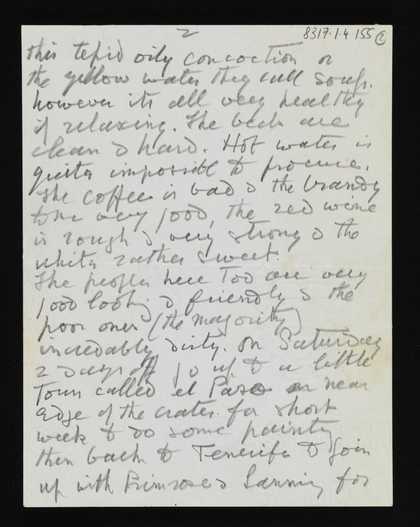 2
8317.1.4 155
this tepid oily concoction or
the yellow water they call soup.
however its all very healthy
if relaxing. The beds are
clean & hard. Hot water is
quite impossible to procure.
The coffee is bad & the brandy
very good, the red wine
is rough & very strong & the
white rather sweet.
The people here too are very
good looking & friendly & the
poor ones (the majority)
incredably dirty. On Saturday
2 days off go up to a little
Town called el Paso near
edge of the crater for short
week to do some painting
then back to Tenerife to join
up with Primrose & Lanning for